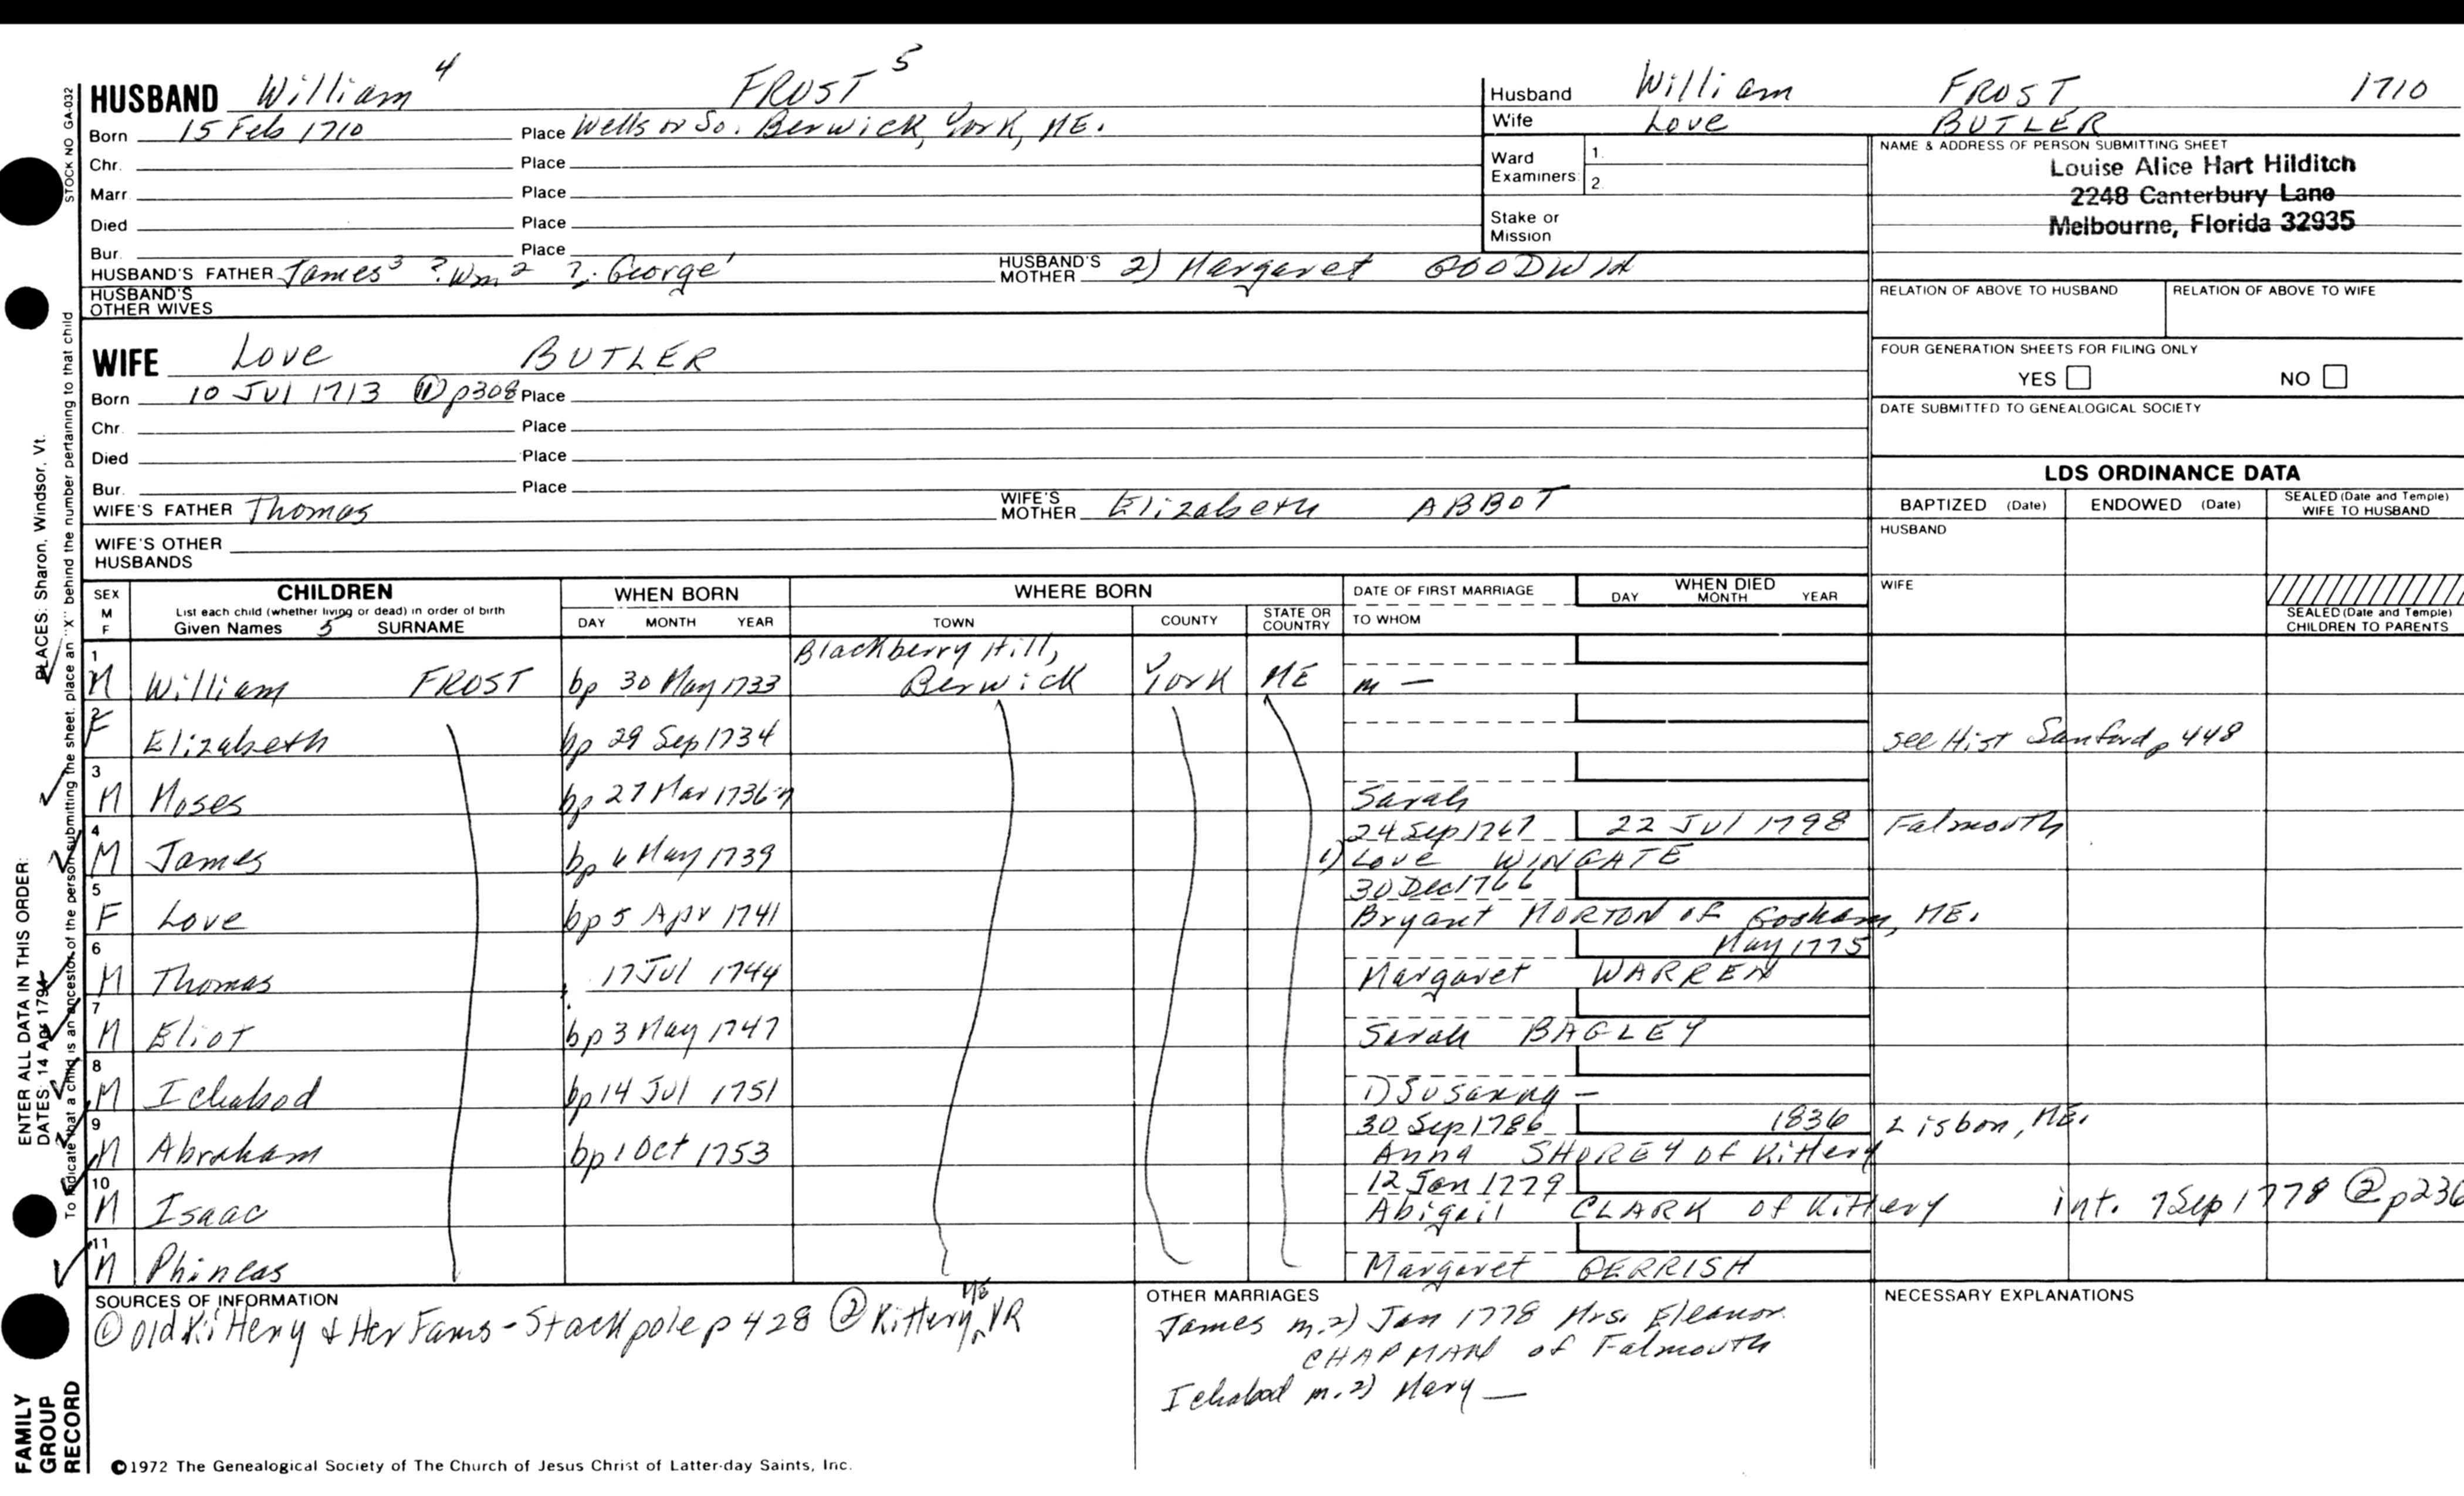 STOCK NO GA-032
HUSBAND William 4 FROST 5
Born 15 Feb 1710 Place Wells or So. Berwick, York, ME.
Chr. Place
Marr. Place
Died Place
Bur. Place
HUSBAND'S FATHER James 3 ? Wm 2 ?. George 1 HUSBAND'S MOTHER 2) Margaret GOODWIN
HUSBAND'S OTHER WIVES
Husband William FROST 1710
Wife Love BUTLER
Ward Examiners: 1. 2.
Stake or Mission
NAME & ADDRESS OF PERSON SUBMITTING SHEET
Louise Alice Hart Hilditch
2248 Canterbury Lane
Melbourne, Florida 32935
RELATION OF ABOVE TO HUSBAND RELATION OF ABOVE TO WIFE
FOUR GENERATION SHEETS FOR FILING ONLY
YES NO
DATE SUBMITTED TO GENEALOGICAL SOCIETY
WIFE Love BUTLER
Born 10 Jul 1713 p308 Place
Chr. Place
Died Place
Bur. Place
WIFE'S FATHER Thomas WIFE'S MOTHER Elizabeth ABBOT
WIFE'S OTHER HUSBANDS
LDS ORDINANCE DATA
BAPTIZED (Date) ENDOWED (Date) SEALED (Date and Temple) WIFE TO HUSBAND
HUSBAND
WIFE
SEALED (Date and Temple) CHILDREN TO PARENTS
SEX M F
CHILDREN
List each child (whether living or dead) in order of birth
Given Names 5 SURNAME
WHEN BORN
DAY MONTH YEAR
WHERE BORN
TOWN COUNTY STATE OR COUNTRY
DATE OF FIRST MARRIAGE
TO WHOM
WHEN DIED
DAY MONTH YEAR
1 M William FROST bp 30 May 1733 Blackberry Hill, Berwick York ME m —
2 F Elizabeth bp 29 Sep 1734 see Hist Sanford p 448
3 M Moses bp 27 Mar 1736-7 Sarah
4 M James bp 6 May 1739 24 Sep 1767 22 Jul 1798 Falmouth
1) Love WINGATE
5 F Love bp 5 Apr 1741 30 Dec 1766
Bryant MORTON of Gorham, ME.
6 M Thomas 17 Jul 1744 May 1775
Margaret WARREN
7 M Eliot bp 3 May 1747 Sarah BAGLEY
8 M Ichabod bp 14 Jul 1751 1) Susanna —
9 M Abraham bp 1 Oct 1753 30 Sep 1786 1836 Lisbon, ME.
Anna SHOREY of Kittery
10 M Isaac 12 Jan 1779
Abigail CLARK of Kittery int. 7 Sep 1778 ② p236
11 M Phineas Margaret GERRISH
SOURCES OF INFORMATION
① Old Kittery & Her Fams - Stackpole p 428 ② Kittery ME VR
OTHER MARRIAGES
James m. 2) Jan 1778 Mrs. Eleanor
CHAPMAN of Falmouth
Ichabod m. 2) Mary —
NECESSARY EXPLANATIONS
©1972 The Genealogical Society of The Church of Jesus Christ of Latter-day Saints, Inc.
FAMILY GROUP RECORD
ENTER ALL DATA IN THIS ORDER:
DATES: 14 Apr 1794
PLACES: Sharon, Windsor, Vt.
To indicate that a child is an ancestor of the person submitting the sheet, place an "X" behind the number pertaining to that child